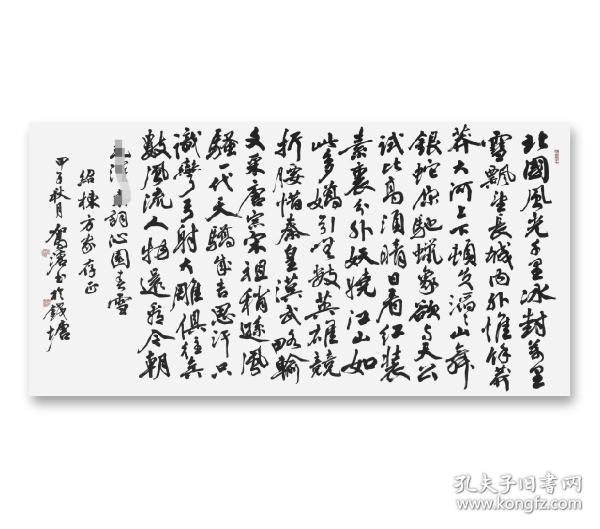 北國風光千里冰封萬里
雪飄望長城內外惟餘莽
莽大河上下頓失滔滔山舞
銀蛇原馳蠟象欲與天公
試比高須晴日看紅裝
素裹分外妖嬈江山如
此多嬌引無數英雄競
折腰惜秦皇漢武略輸
文采唐宗宋祖稍遜風
騷一代天驕成吉思汗只
識彎弓射大雕俱往矣
數風流人物還看今朝
詞沁園春雪
紹棟方家存正
甲子秋月 書於錢塘
孔夫子旧书网
www.kongfz.com